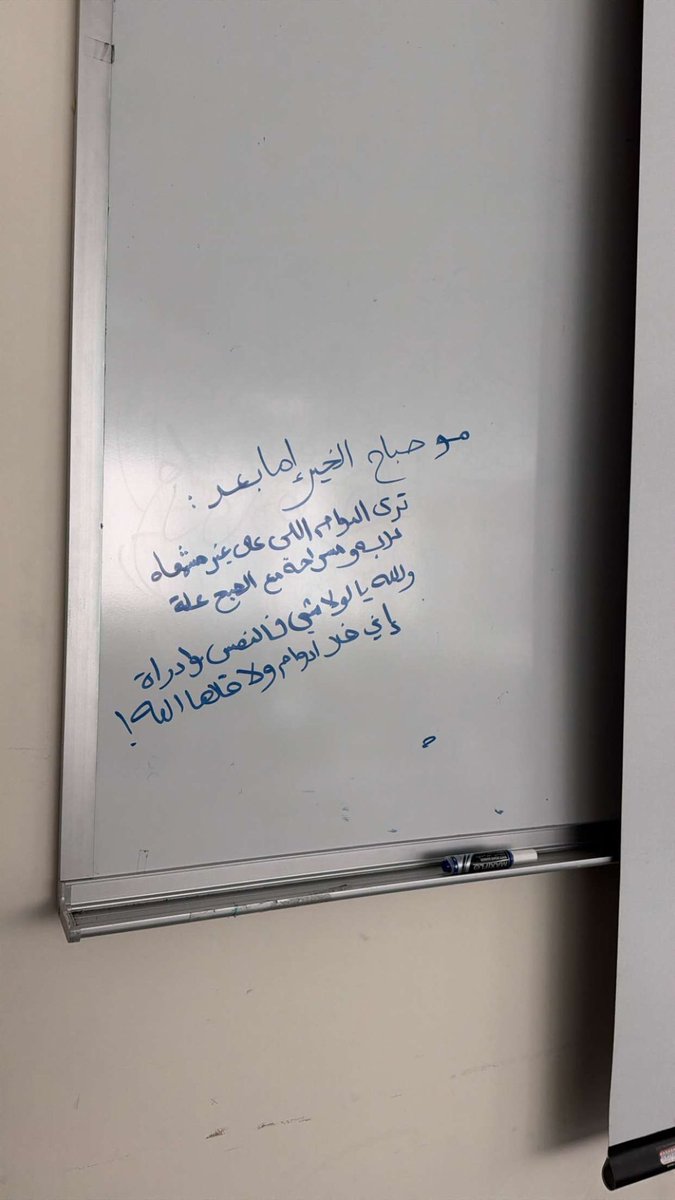 مو صباح الخير إما بعد :
ترى الدوام اللي على غير مشهاه
علابه ومسراحة مع الصبح علة
والله يا لولا شيٍ فالنفس وادراة
إني فلا ادوام ولا قالها الله !